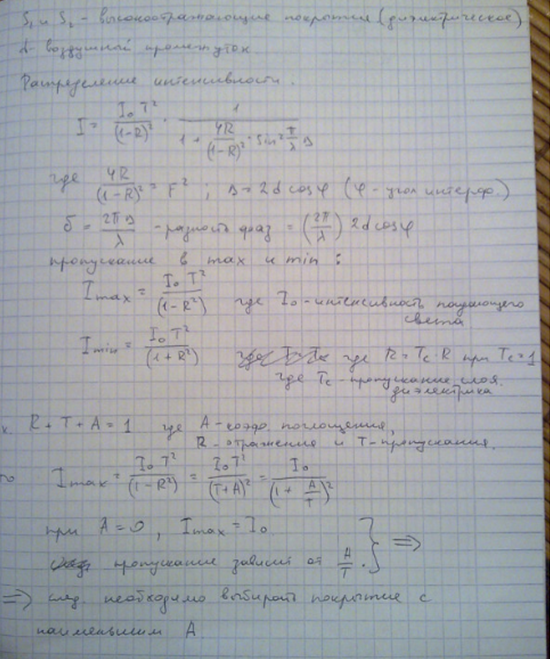 S₁ и S₂ - высокоотражающие покрытия (диэлектрическое)
d - воздушный промежуток.
Распределение интенсивности.
I = I₀T²/(1-R)² · 1/(1 + 4R/(1-R)² · sin² π/λ Δ)
где 4R/(1-R)² = F² ; Δ = 2d cosφ (φ - угол интерф.)
δ = 2πΔ/λ - разность фаз = (2π/λ) 2d cosφ
пропускание в max и min :
I max = I₀T²/(1-R²) где I₀ - интенсивность падающего света
I min = I₀T²/(1+R²) где R = Tc·R при Tc=1
где Tc - пропускание слоя диэлектрика
R + T + A = 1 где A - коэфф. поглощения,
R - отражения и T - пропускания.
I max = I₀T²/(1-R²) = I₀T²/(T+A)² = I₀/(1 + A/T)²
при A = 0 , I max = I₀
пропускание зависит от A/T. } ⇒
⇒ след. необходимо выбирать покрытие с
наименьшим A